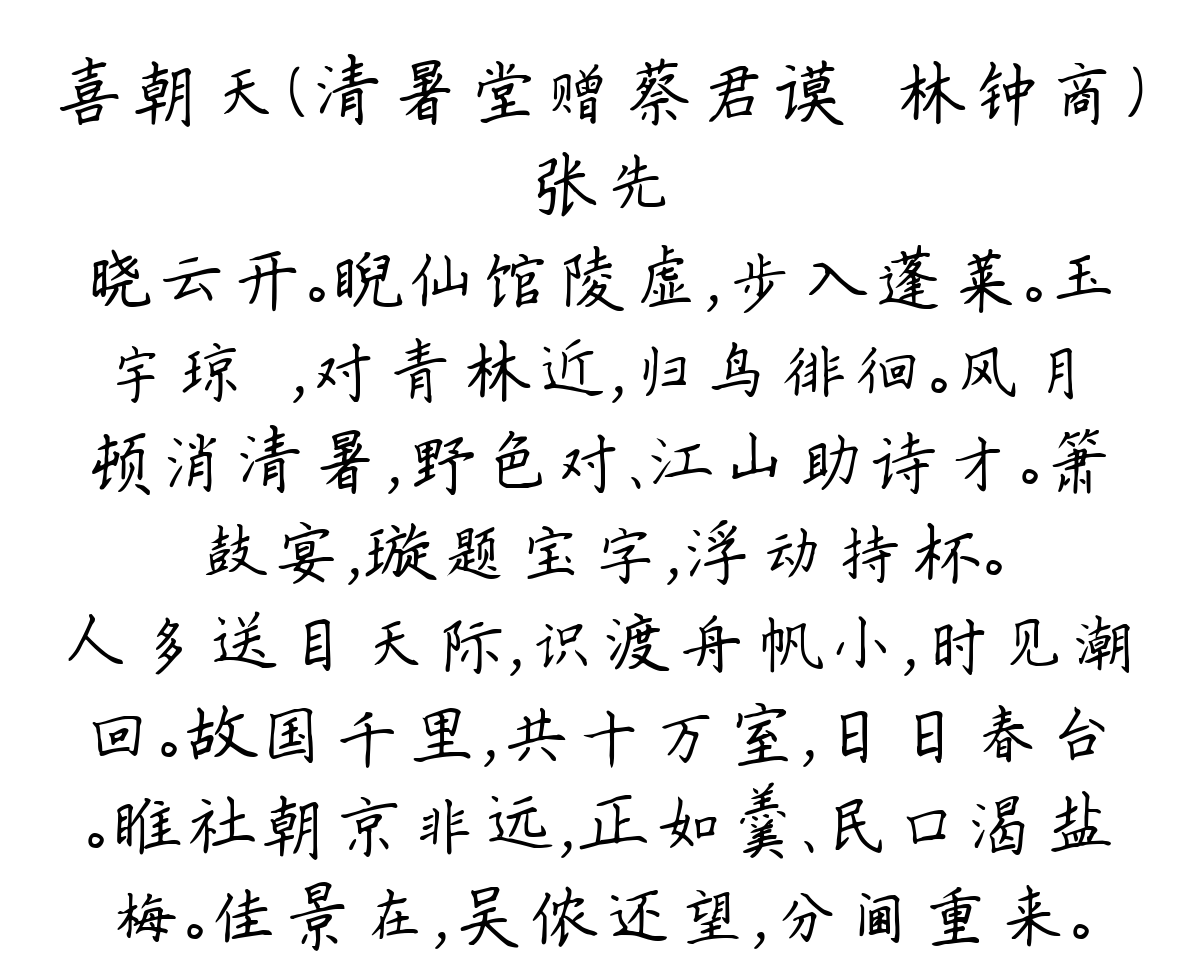 喜朝天(清暑堂赠蔡君谟 林钟商)
张先
晓云开。睨仙馆陵虚,步入蓬莱。玉
宇琼 ,对青林近,归鸟徘徊。风月
顿消清暑,野色对、江山助诗才。箫
鼓宴,璇题宝字,浮动持杯。
人多送目天际,识渡舟帆小,时见潮
回。故国千里,共十万室,日日春台
。睢社朝京非远,正如羹、民口渴盐
梅。佳景在,吴侬还望,分阃重来。